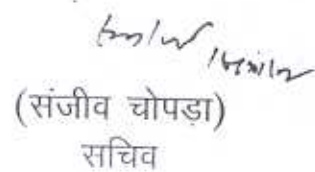 (संजीव चोपडा)
सचिव